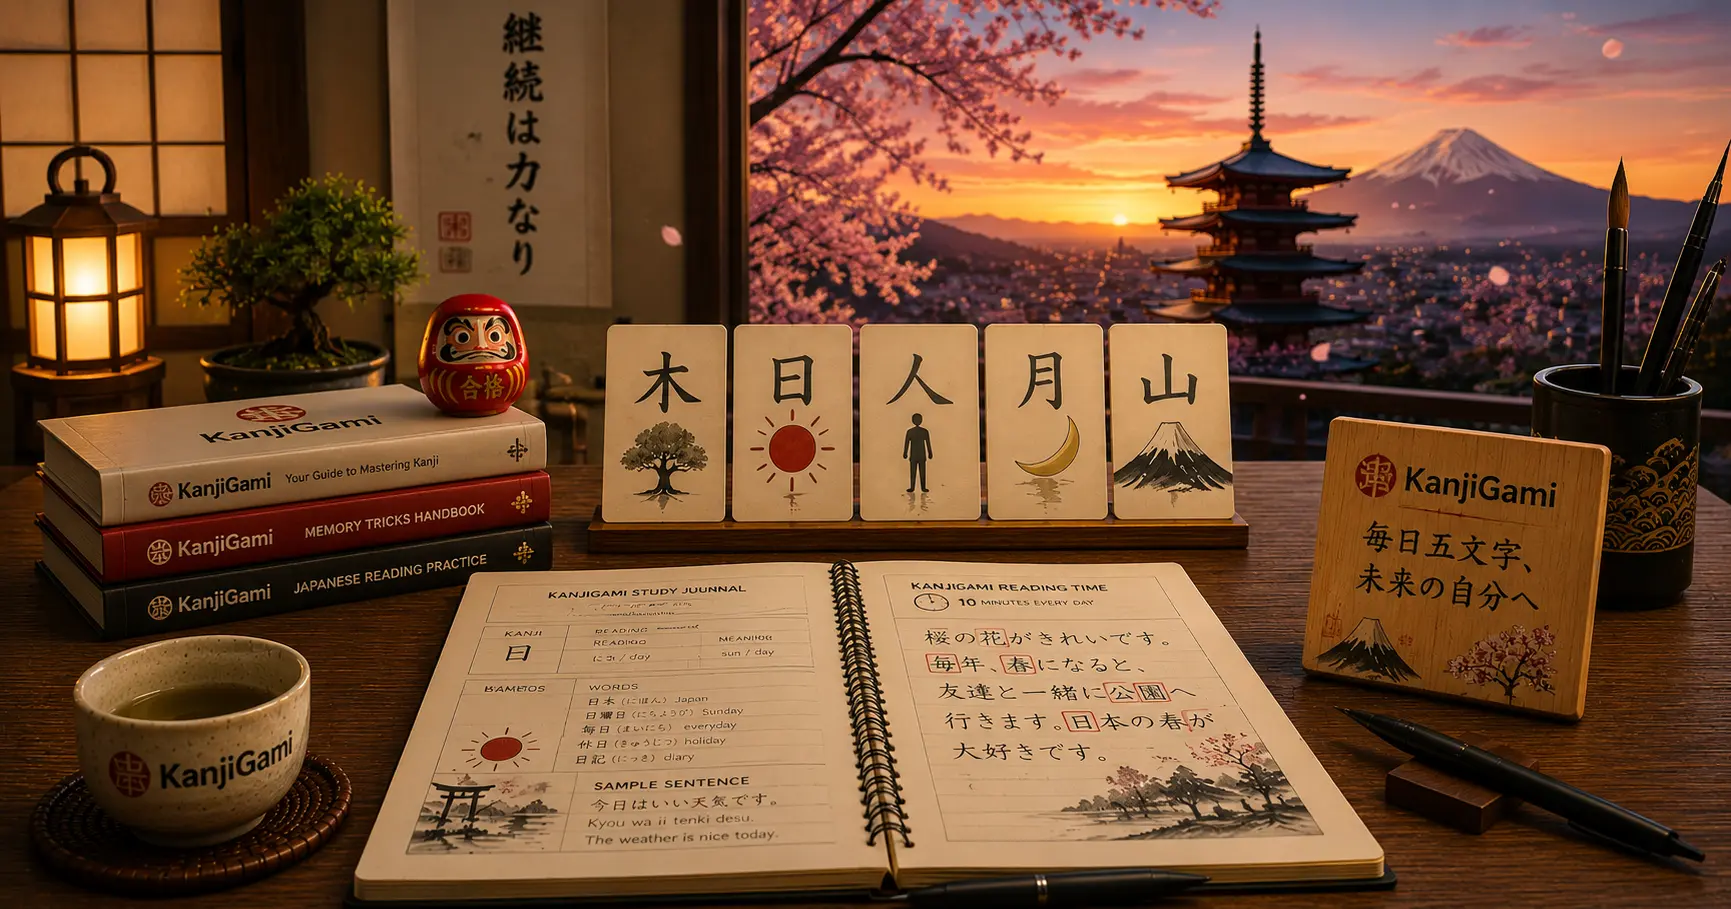 継続は力なり
合格
KanjiGami
KanjiGami Your Guide to Mastering Kanji
KanjiGami MEMORY TRICKS HANDBOOK
KanjiGami JAPANESE READING PRACTICE
木
日
人
月
山
KanjiGami
毎日五文字、
未来の自分へ
KanjiGami
KANJIGAMI STUDY JUUNNAL
KANJI
READING
日
/ day
sun / day
WORDS
日本 (にほん) Japan
日曜日 Sunday
毎日 (まいにち) everyday
休日 (きゅうじつ) holiday
日記 (にっき) diary
SAMPLE SENTENCE
今日はいい天気です。
Kyou wa ii tenki desu.
The weather is nice today.
KANJIGAMI READING TIME
10 MINUTES EVERY DAY
桜の花がきれいです。
毎年、春になると、
友達と一緒に公園へ
行きます。日本の春が
大好きです。